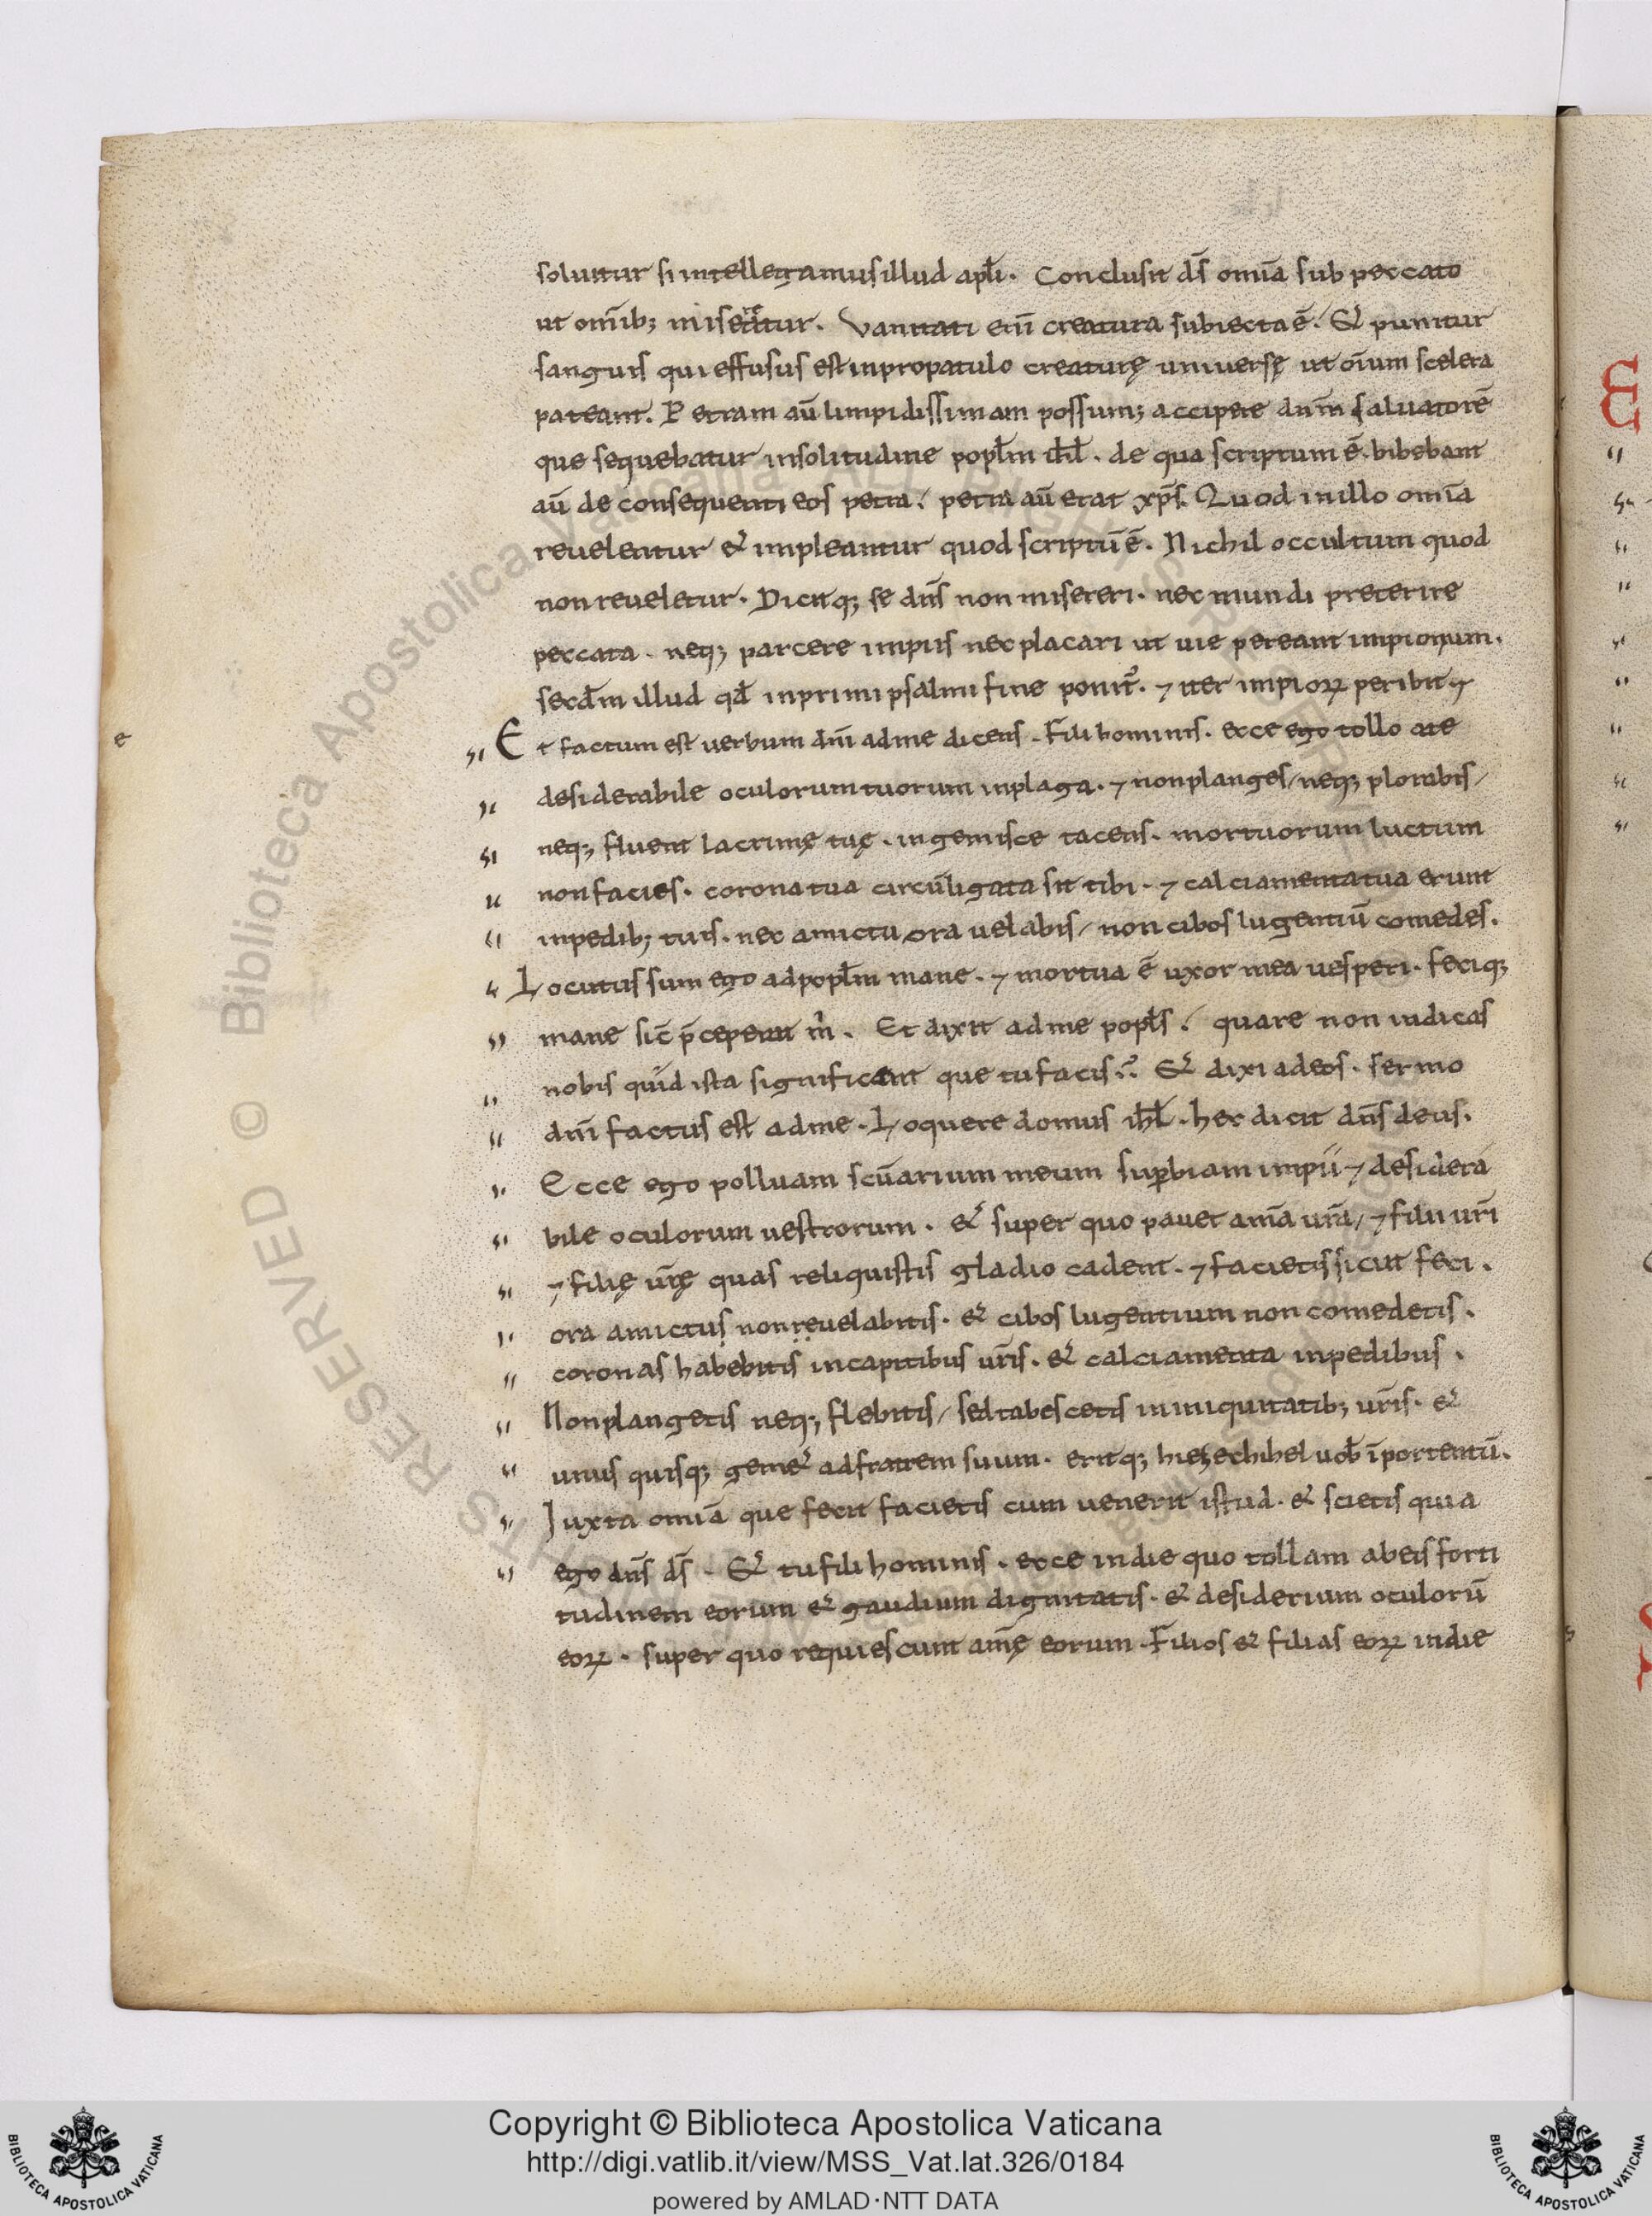 soluitur si intellegamus illud apl̄i. Conclusit d̄s om̄ia sub peccato
ut om̄ib; misereatur. Vanitati eni̅ creatura subiecta ē. Et punitur
sanguis qui effusus est in propatulo creaturę uniuersę ut oīum scelera
pateant. Petram aū limpidissimam possum; accipere dn̄m saluatorē
que sequebatur in solitudine popl̄m isr̄l. de qua scriptum ē. bibebant
aū de consequenti eos petra. petra aū erat xp̄s. Quod in illo om̄ia
reuelentur & impleantur quod scriptū ē. Nichil occultum quod
non reueletur. Dicitq; se dn̄s non misereri. nec mundi preterire
peccata. neq; parcere impiis nec placari ut uie pereant impiorum.
secd̄m illud qd̄ in primi psalmi fine ponit᷑. ⁊ iter impioꝝ peribit
Et factum est uerbum dn̄i ad me dicens. Fili hominis. ecce ego tollo a te
desiderabile oculorum tuorum in plaga. ⁊ non planges / neq; plorabis /
neq; fluent lacrimę tuę. ingemisce tacens. mortuorum luctum
non facies. corona tua circūligata sit tibi. ⁊ calciamenta tua erunt
in pedib; tuis. nec amictu ora uelabis / non cibos lugentiū comedes.
Locutus sum ego ad popl̄m mane. ⁊ mortua ē uxor mea uesperi. feciq;
mane sic̄ p̄ceperat m̄. Et dixit ad me popl̄s. quare non indicas
nobis quid ista significant que tu facis. Et dixi ad eos. sermo
dn̄i factus est ad me. Loquere domus ih̄l. hec dicit dn̄s deus.
Ecce ego polluam scūarium meum sup̱biam impii ⁊ desidera
bile oculorum uestrorum. & super quo pauet am̄a ur̄a / ⁊ filii ur̄i
⁊ filię ur̄ę quas reliquistis gladio cadent. ⁊ facietis sicut feci.
ora amictus non reuelabitis. & cibos lugentium non comedetis.
coronas habebitis in capitibus ur̄is. & calciamenta in pedibus.
Non plangetis neq; flebitis / sed tabescetis in iniquitatib; ur̄is. &
unus quisq; gem& ad fratrem suum. eritq; hiezechihel uob̄ ī portentū.
Iuxta om̄ia que fecit facietis cum uenerit istud. & scietis quia
ego dn̄s d̄s. Et tu fili hominis. ecce in die quo tollam ab eis forti
tudinem eorum & gaudium dignitatis. & desiderium oculorū
eoꝝ. super quo requiescunt am̄ę eorum. Filios & filias eoꝝ in die
e
Copyright © Biblioteca Apostolica Vaticana
http://digi.vatlib.it/view/MSS_Vat.lat.326/0184
powered by AMLAD·NTT DATA